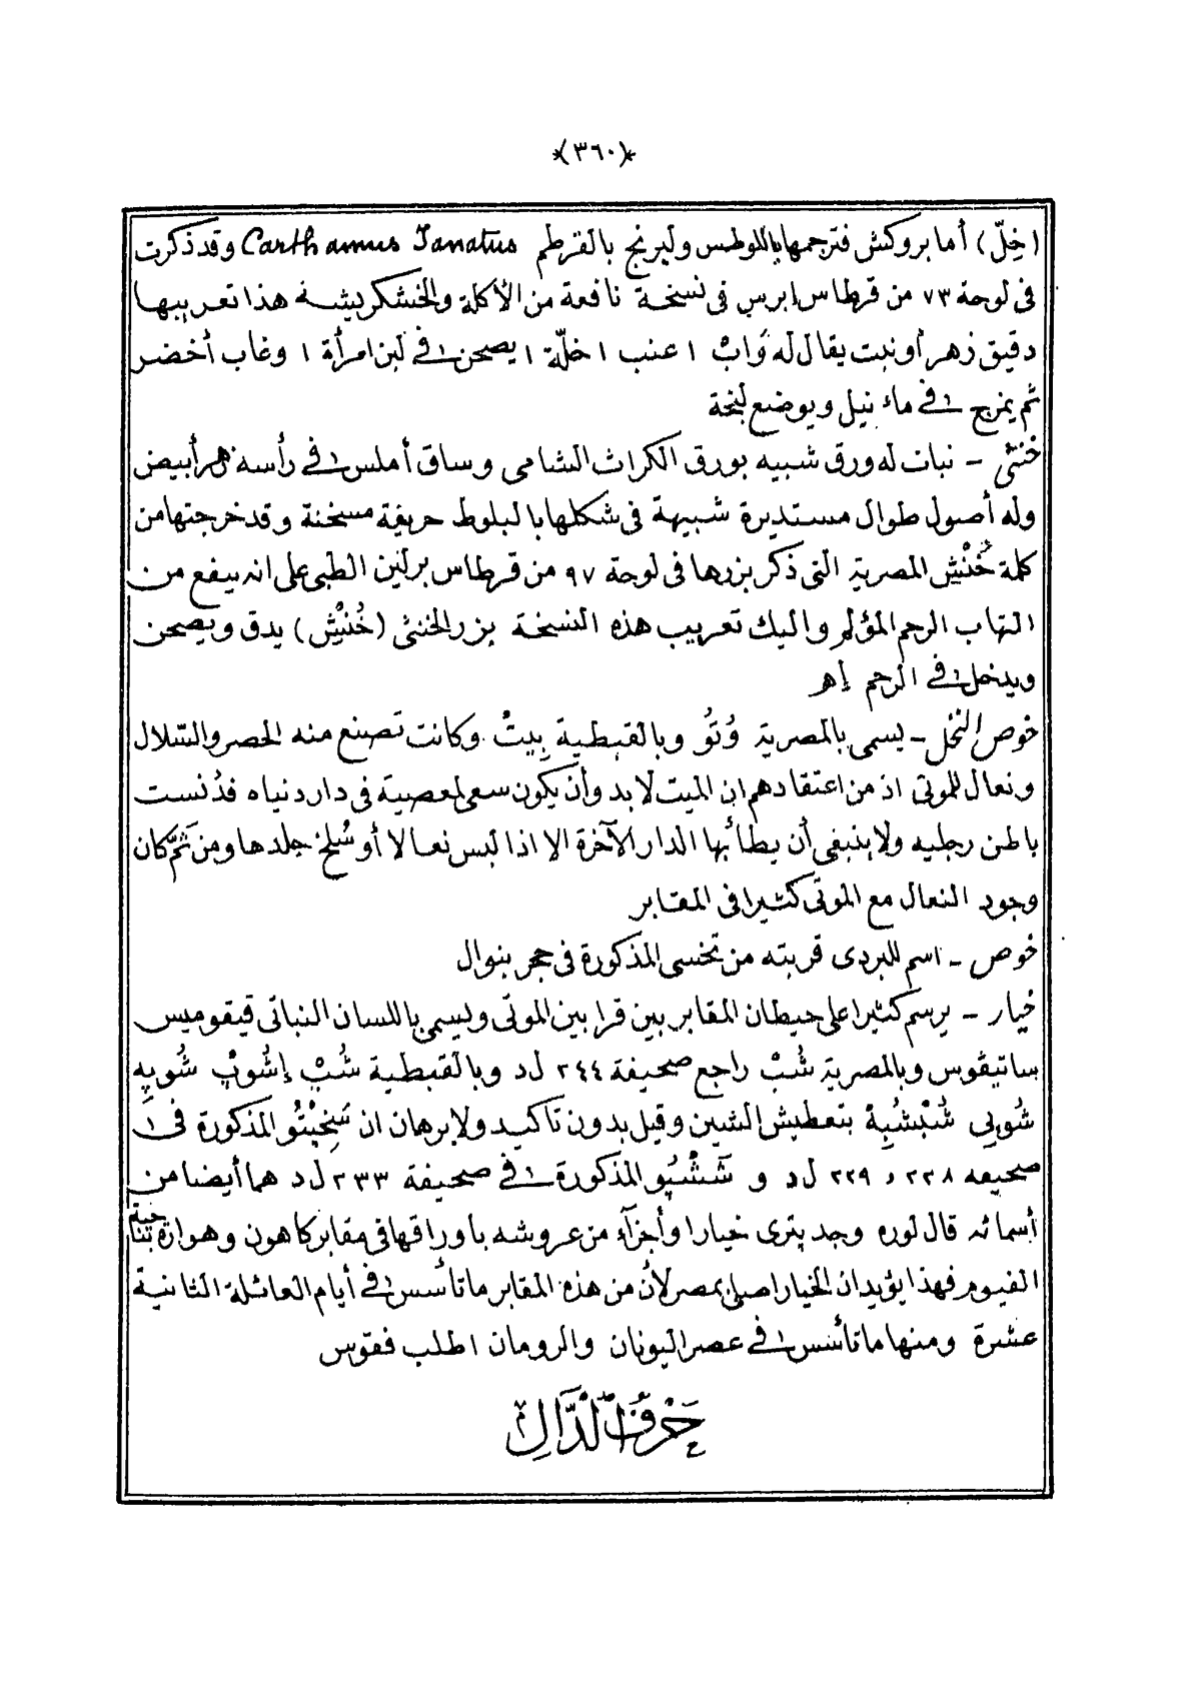 *(٣٦٠)*
(خِلّ) أما بروكش فترجمها باللوطس وليرنج بالقرطم Carthamus Tanatus وقد ذكرت
فى لوحة ٧٣ من قرطاس إبرس فى نسخة نافعة من الأكلة والخشكريشة هذا تعريبها
دقيق زهر أو نبت يقال له نَوابْ ١ عنب ١ خلّة ١ يصحن فى لبن امرأة ١ وغاب أخضر
ثم يمزج فى ماء نيل ويوضع لبخة
خنثى - نبات له ورق شبيه بورق الكراث الشامى وساق أملس فى رأسه زهر أبيض
وله أصول طوال مستديرة شبيهة فى شكلها بالبلوط حريفة مسخنة وقد خرجتها من
كلمة خُنْتِش المصرية التى ذكر بزرها فى لوحة ٩٧ من قرطاس برلين الطبى على انه ينفع من
التهاب الرحم المؤلم واليك تعريب هذه النسخة بزر الخنثى (خُنتِش) يدق ويصحن
ويدخل فى الرحم إهـ
خوص النخل - يسمى بالمصرية وُتُو وبالقبطية بِيتْ وكانت تصنع منه الحصر والسّلال
ونعال للموتى اذ من اعتقادهم ان الميت لا بد وأن يكون سعى لمعصية فى دار دنياه فدُنست
باطن رجليه ولا ينبغى أن يطأ بها الدار الآخرة الا اذا لبس نعالا أو سُلخ جلدها ومن ثَمَّ كان
وجود النعال مع الموتى كثيرا فى المقابر
خوص - اسم للبردى قربته من تخسى المذكورة فى حجر بنوال
خيار - يرسم كثيرا على حيطان المقابر بين قرابين الموتى ويسمى باللسان النباتى قيقوميس
ساتيڤوس وبالمصرية شُبْ راجع صحيفة ٢٤٤ ل د وبالقبطية شُبْ إشُوبْ شُوبِه
شُوبِى شُبْشُبِة بتعطيش الشين وقيل بدون تاكيد ولا برهان ان سَخِبْتُو المذكورة فى
صحيفه ٢٢٨ و ٢٢٩ ل د و شَشْپُو المذكورة فى صحيفة ٢٣٣ ل د هما أيضا من
أسمائه قال لوره وجد پترى خيارا وأجزآء من عروشه بأوراقها فى مقابر كاهون وهوارة بناحية
الفيوم فهذا يؤيد ان الخيار اصلى بمصر لأن من هذه المقابر ما تأسس فى أيام العائلة الثانية
عشرة ومنها ما تأسس فى عصر اليونان والرومان اطلب فقوس
حَرْفُ الدَّالِ